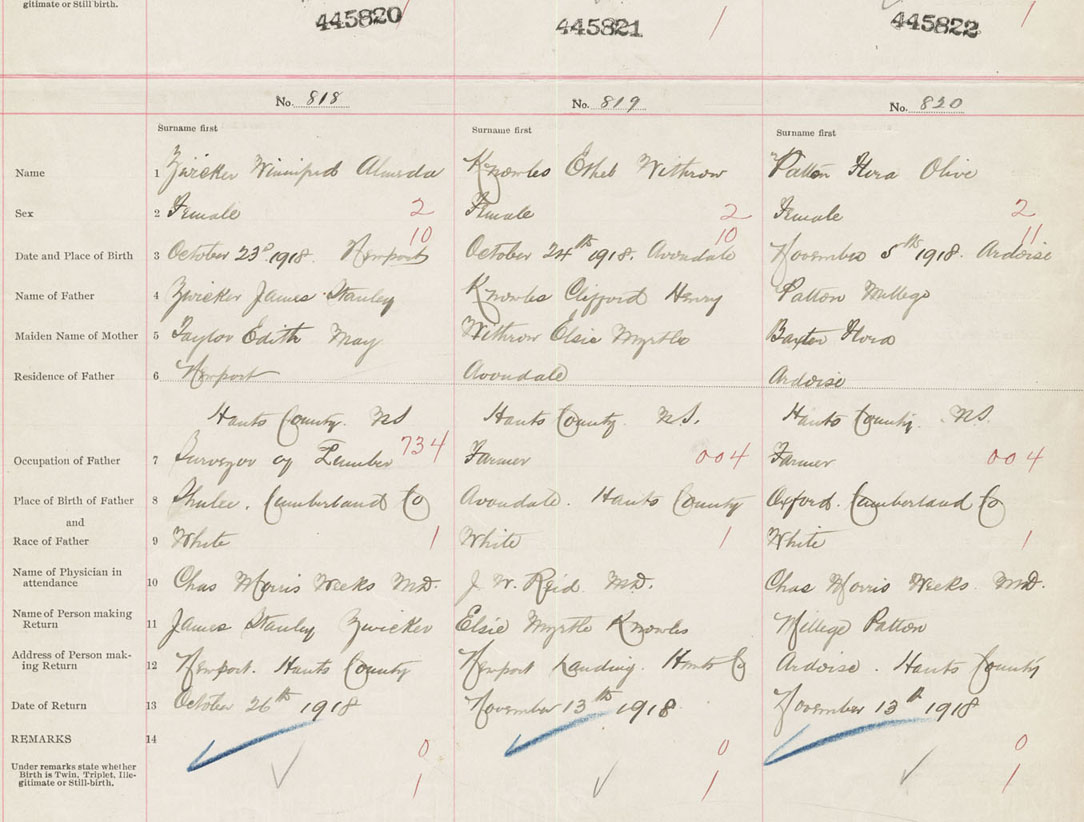 gitimate or Still birth.
445820 445821 1 445822 1
No. 818 No. 819 No. 820
Surname first Surname first Surname first
Name 1 Zwicker Winnifred Almeda Knowles Ethel Withrow Patton Flora Olive
Sex 2 Female 2 Female 2 Female 2
10 10 11
Date and Place of Birth 3 October 23rd 1918. Newport October 24th 1918. Avondale November 5th 1918. Ardoise
Name of Father 4 Zwicker James Stanley Knowles Clifford Henry Patton Millege
Maiden Name of Mother 5 Taylor Edith May Withrow Elsie Myrtle Baxter Flora
Residence of Father 6 Newport Avondale Ardoise
Hants County. NS Hants County. N.S. Hants County. N.S.
Occupation of Father 7 Surveyor of Lumber 734 Farmer 004 Farmer 004
Place of Birth of Father 8 Shulee, Cumberland Co Avondale. Hants County Oxford. Cumberland Co
and
Race of Father 9 White 1 White 1 White 1
Name of Physician in
attendance 10 Chas Morris Weeks M.D. J. W. Reid M.D. Chas Morris Weeks M.D.
Name of Person making
Return 11 James Stanley Zwicker Elsie Myrtle Knowles Millege Patton
Address of Person mak-
ing Return 12 Newport. Hants County Newport Landing. Hants Co Ardoise. Hants County
Date of Return 13 October 26th 1918 November 13th 1918 November 13th 1918
REMARKS 14 0 0 0
Under remarks state whether
Birth is Twin, Triplet, Ille-
gitimate or Still-birth. 1 1 1